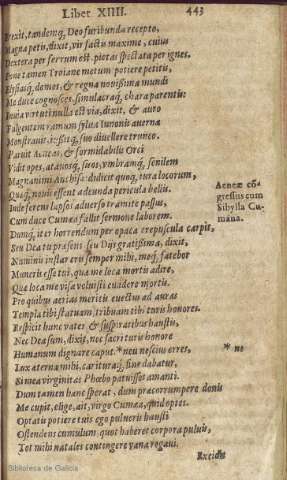 Liber XIIII. 443
Erexit, tandemq́, Deo furibunda recepto,
Magna petis, dixit, vir factis maxime, cuius
Dextera per ferrum est, pietas spectata per ignes.
Pone tamen Troiane metum potiere petitis,
Elysiasq́, domos, & regna nouissima mundi
Me duce cognosces, simulacraq́, chara parentis:
Inuia virtuti nulla est via, dixit, & auro
Fulgentem ramum sylua Iunonis auerna
Monstrauit, iussitq́, suo diuellere trunco.
Paruit Aeneas, & formidabilis Orci
Vidit opes, atauosq́, suos, vmbramq́, senilem
Magnanimi Anchisæ: didicit quoq, iura locorum,
Quæq́, nouis essent adeunda pericula bellis.
Inde ferens lapsos aduerso tramite passus,
Cum duce Cumæa fallit sermone laborem.
Dumq́, iter horrendum per opaca crepuscula carpit,
Seu Dea tu præsens, seu Dijs gratissima, dixit,
Numinis instar eris semper mihi, meq́, fatebor
Muneris esse tui, quæ me loca mortis adire,
Quæ loca me visæ voluisti euadere mortis.
Pro quibus aerias meritis euectus ad auras
Templa tibi statuam, tribuam tibi turis honores.
Respicit hunc vates, & suspiratibus haustis,
Nec Dea sum, dixit, nec sacri turis honore
Humanum dignare caput. *neu nescius erres,
Lux æterna mihi, carituraq́, fine dabatur,
Si mea virginitas Phœbo patuisset amanti.
Dum tamen hanc sperat, dum præcorrumpere donis
Me cupit, elige, ait, virgo Cumæa, quid optes:
Optatis potiere tuis ego pulueris hausti
Ostendens cumulum, quot haberet corpora puluis,
Tot mihi natales contingere vana rogaui.
Excidit
Aeneæ cō-
gressus cum
Sibylla Cu-
mana.
* ne
Biblioteca de Galicia